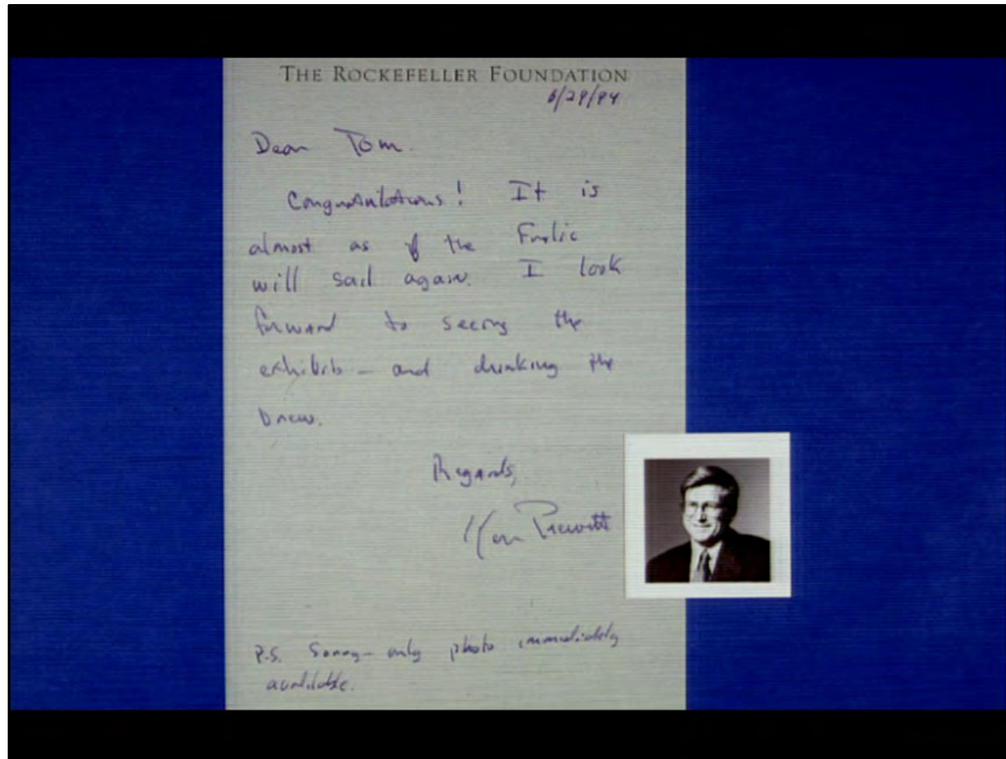 THE ROCKEFELLER FOUNDATION
6/29/94
Dear Tom.
Congratulations! It is
almost as if the Frolic
will sail again. I look
forward to seeing the
exhibits - and drinking the
brew.
Regards,
Ken Prewitt
P.S. Sorry - only photo immediately
available.